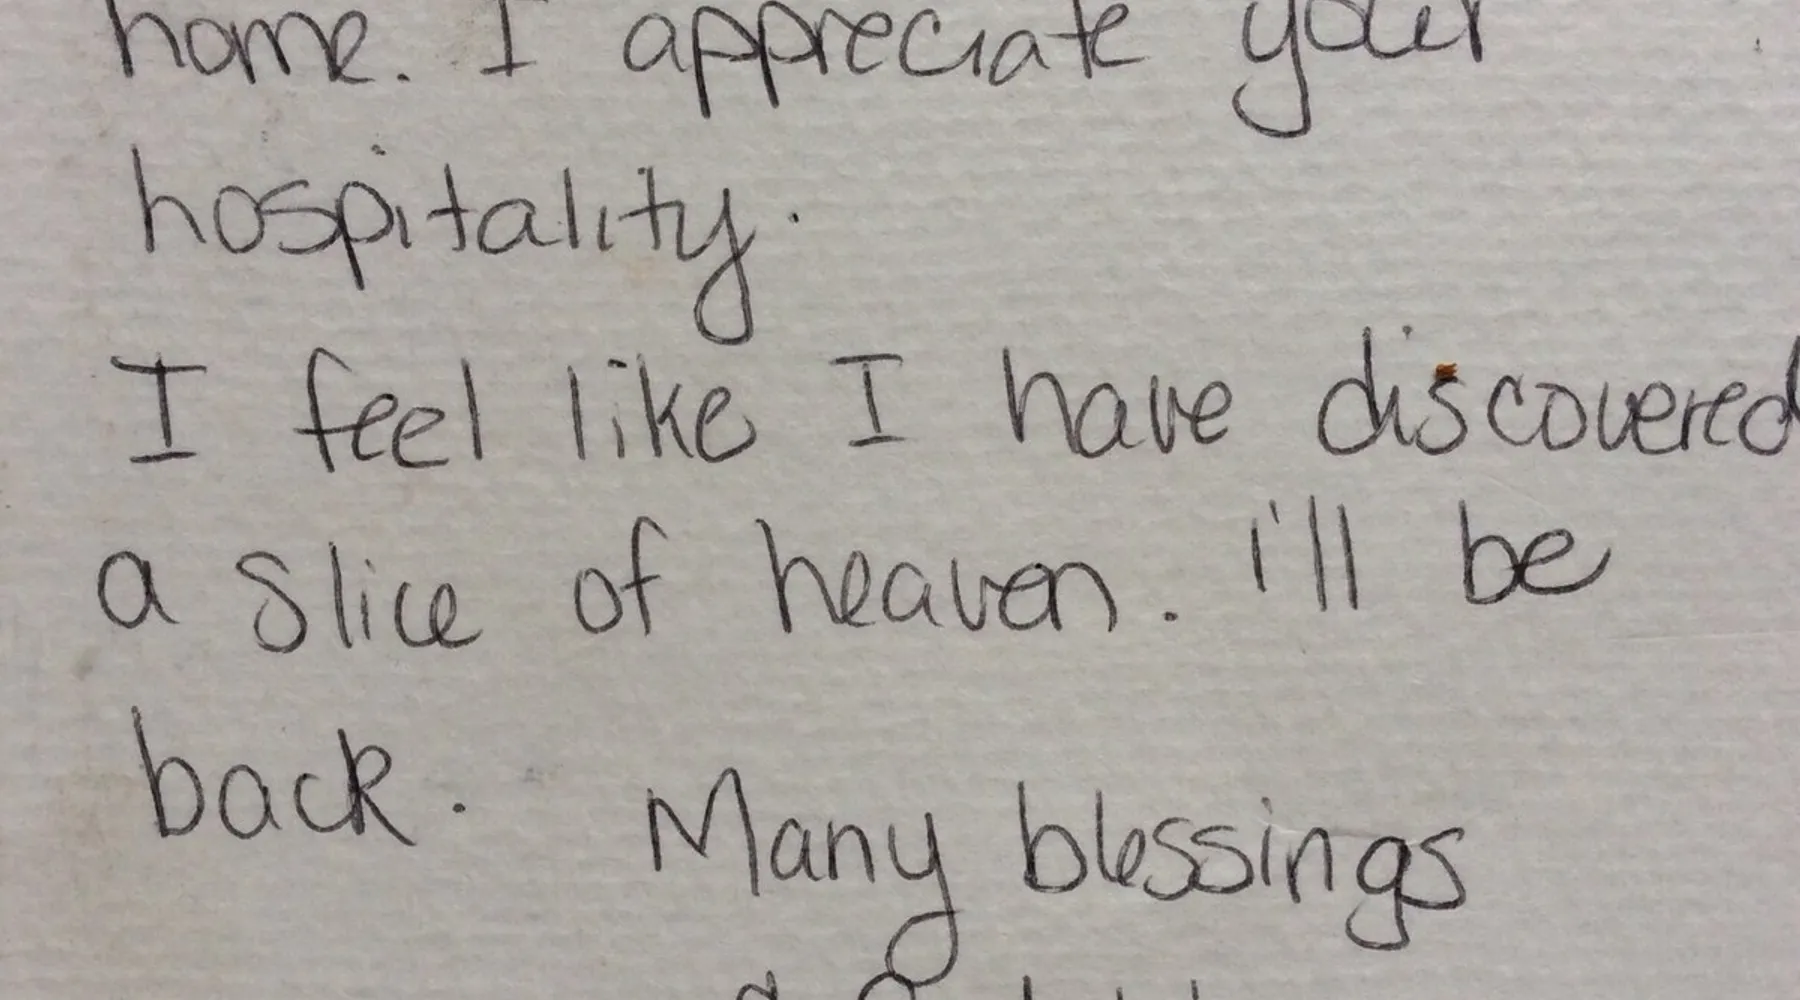 home. I appreciate your
hospitality.
I feel like I have discovered
a slice of heaven. i'll be
back. Many blessings